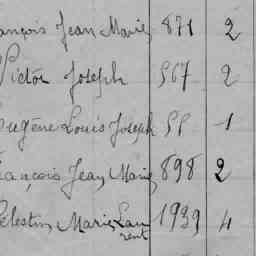 ançois Jean Marie 871 2
Victor Joseph 567 2
Eugène Louis Joseph 55 1
rançois Jean Marie 898 2
élestin Marie Lau 1939 4
rent